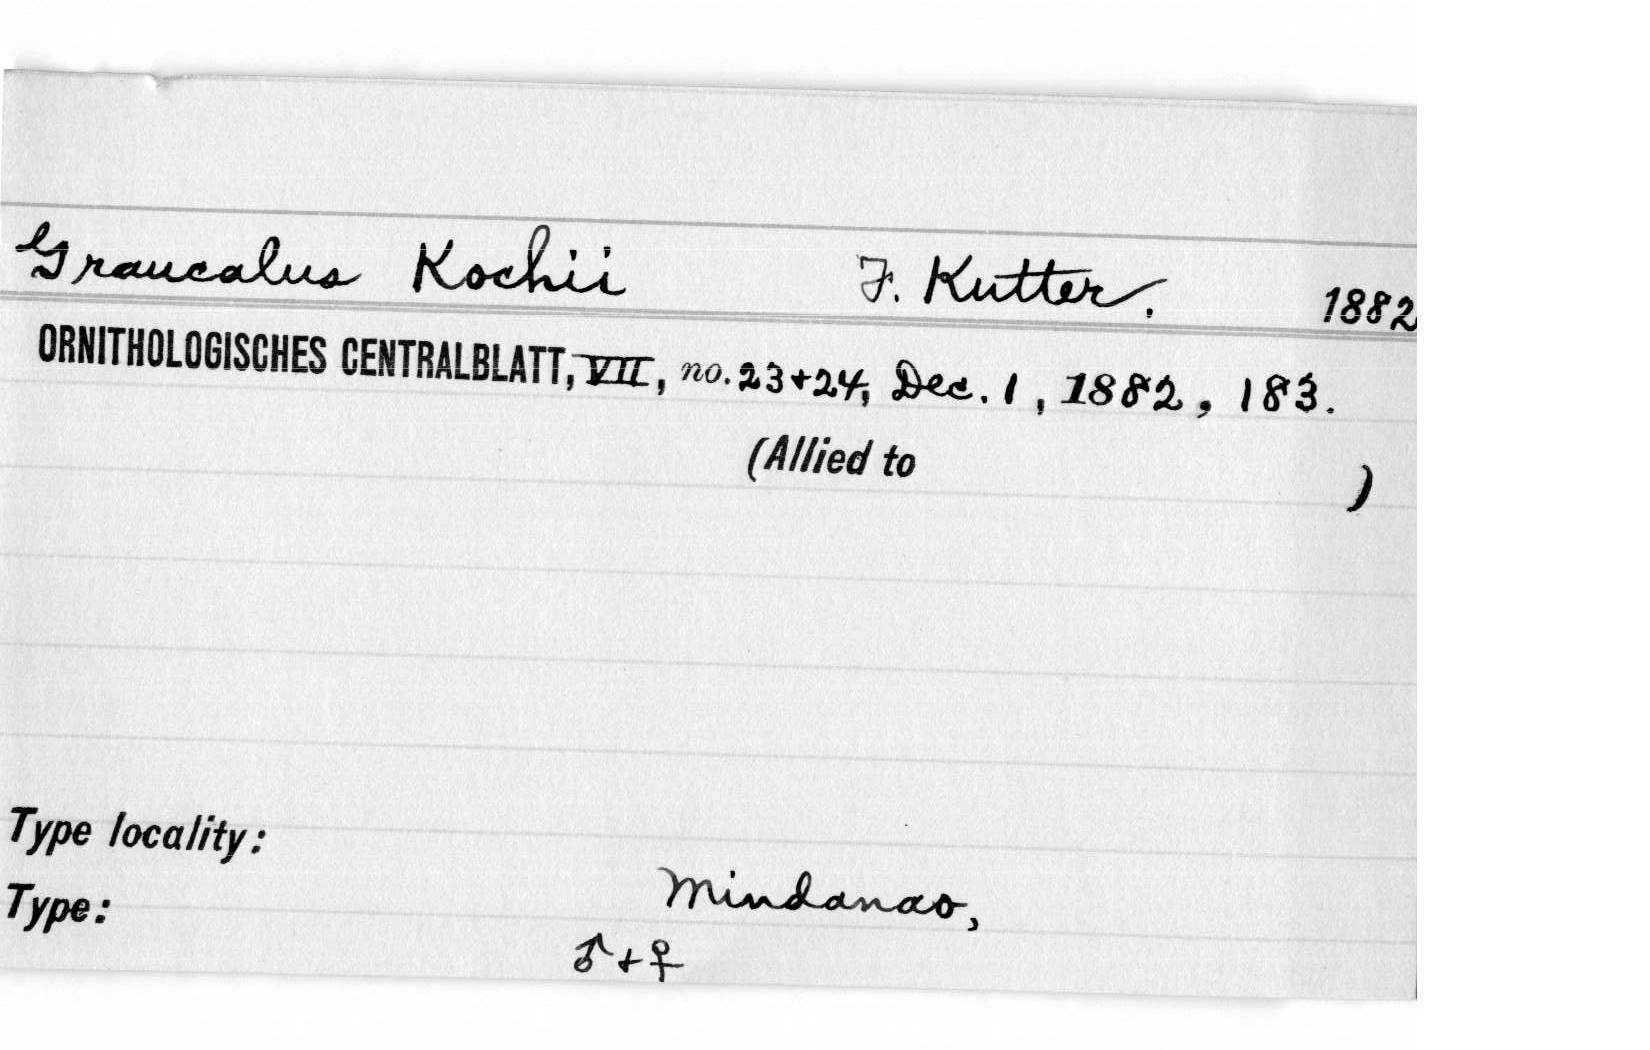 Graucalus Kochii F. Kutter. 1882
ORNITHOLOGISCHES CENTRALBLATT, VII, no. 23+24, Dec. 1, 1882, 183.
(Allied to )
Type locality:
Mindanao,
Type:
♂+♀